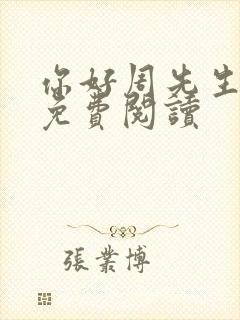 你好周先生
免費閱讀
張業博